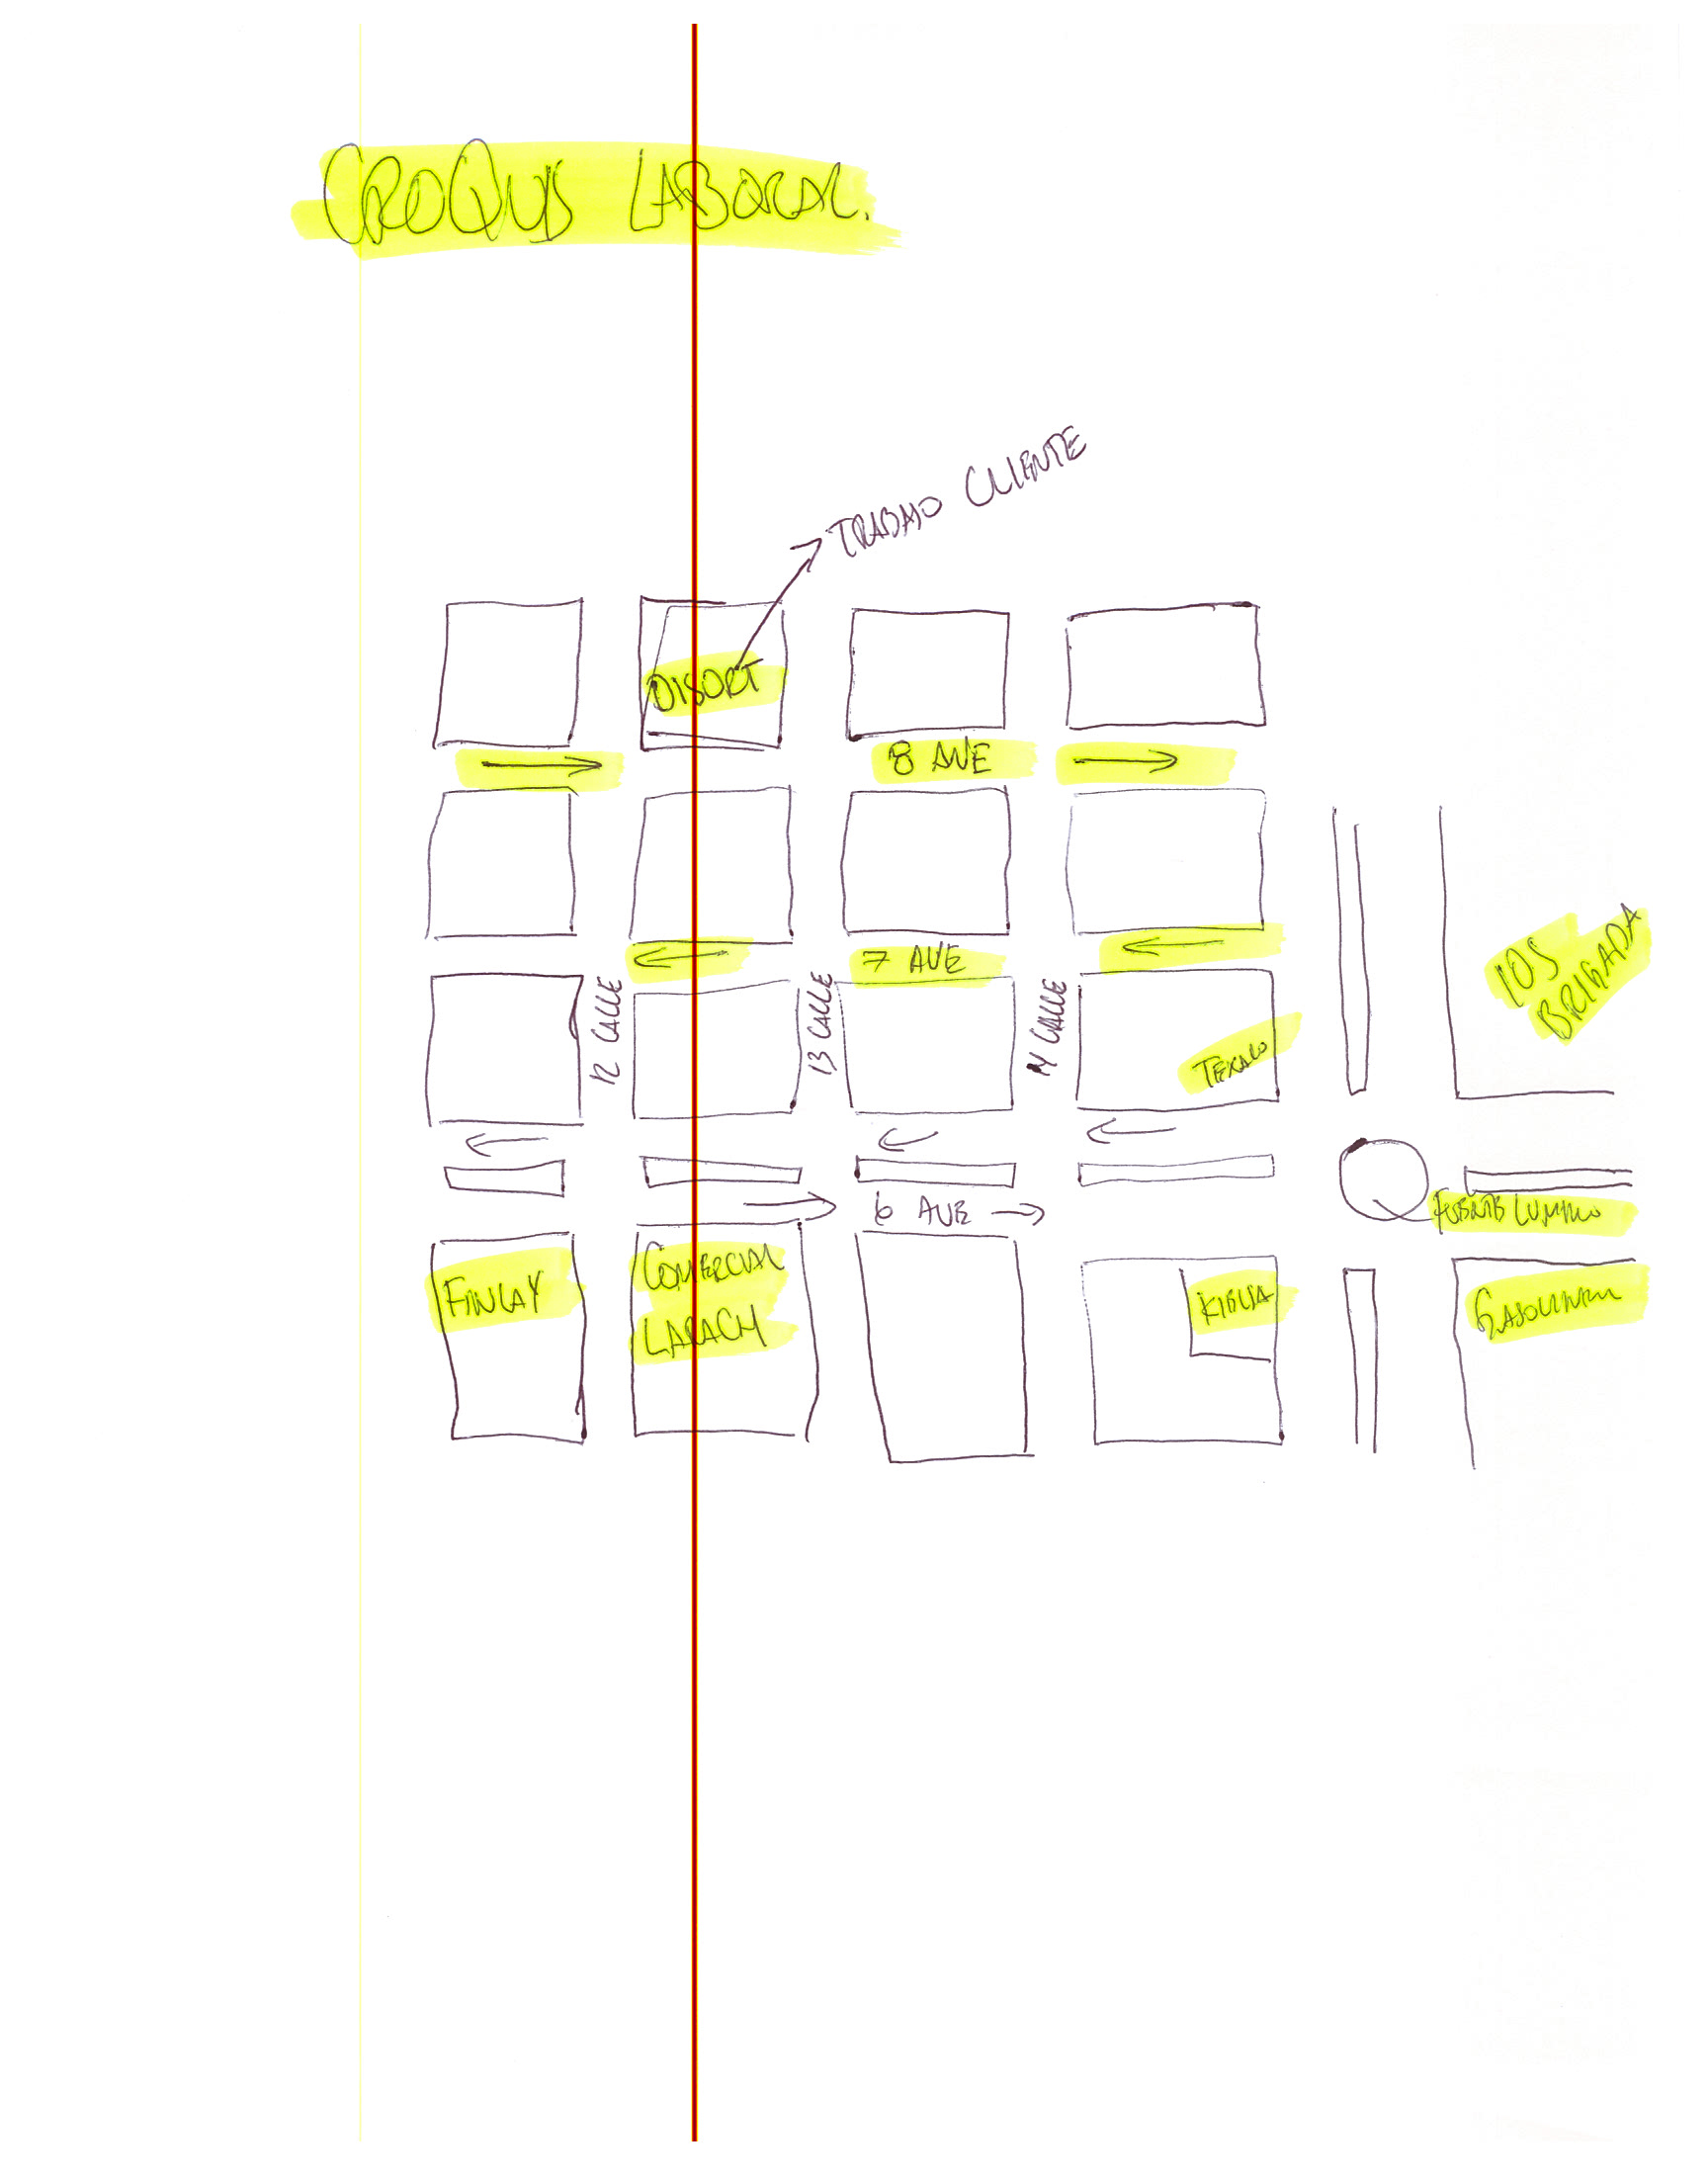 CROQUIS LABORAL.
TRABAJO CLIENTE
DISORT
8 AVE
7 AVE
105
BRIGADA
12 CALLE
13 CALLE
14 CALLE
TEXACO
6 AVE
FUENTE LUMINO
FINLAY
COMERCIAL
LARACH
KIELSA
GASOLINERA